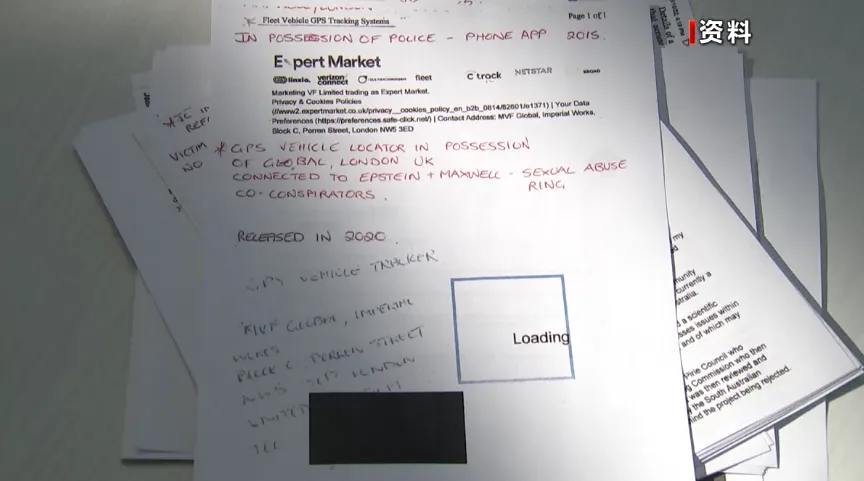 Fleet Vehicle GPS Tracking Systems
Page 1 of 1
資料
IN POSSESSION OF POLICE - PHONE APP 2015.
Expert Market
linxio. verizon connect fleet Ctrack NETSTAR
Marketing VF Limited trading as Expert Market.
Privacy & Cookies Policies
(//www2.expertmarket.co.uk/privacy__cookies_policy_en_b2b_0814/82601/e1371) | Your Data
Preferences (https://preferences.safe-click.net/) | Contact Address: MVF Global, Imperial Works,
Block C, Perren Street, London NW5 3ED
VICTIM
NO
* GPS VEHICLE LOCATOR IN POSSESSION
OF GLOBAL, LONDON UK
CONNECTED TO EPSTEIN + MAXWELL - SEXUAL ABUSE
RING
CO-CONSPIRATORS.
RELEASED IN 2020.
GPS VEHICLE TRACKER
MVF GLOBAL, IMPERIAL
BLOCK C PERREN STREET
TEL
Loading
my
currently a
a scientific
issues within
and of which may
Pirie Council who
Commission who then
was then reviewed and
the South Australian
the project being rejected.